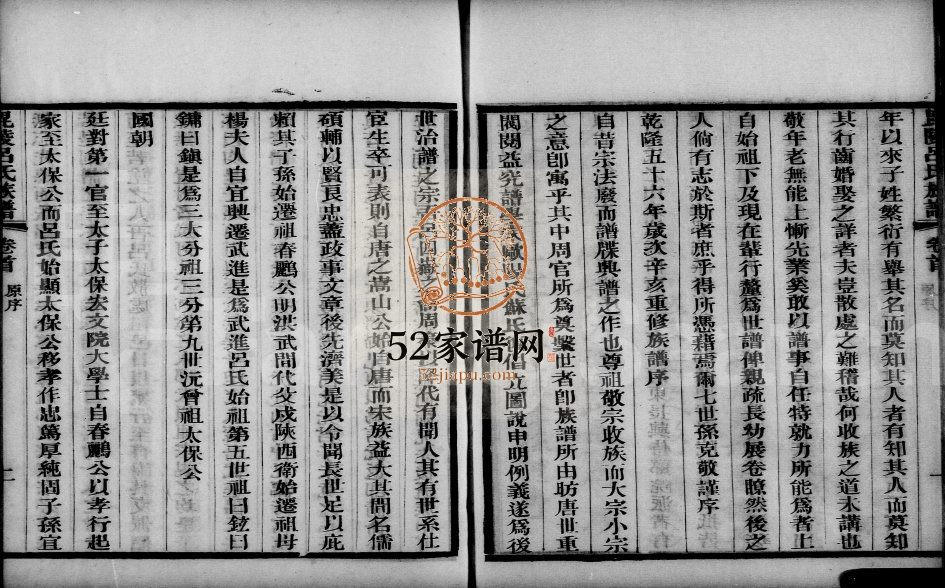 年以來子姓繁衍有舉其名而莫知其人者有知其人而莫知
其行齒婚娶之詳者夫豈散處之難稽哉何收族之道未講也
敬年老無能上慚先業奚敢以譜事自任特就力所能為者上
自始祖下及現在輩行釐為世譜俾親疏長幼展卷瞭然後之
人倘有志於斯者庶乎得所憑藉焉爾七世孫克敬謹序
乾隆五十六年歲次辛亥重修族譜序
自昔宗法廢而譜牒興譜之作也尊祖敬宗收族而大宗小宗
之意卽寓乎其中周官所為奠繫世者卽族譜所由昉唐世重
閥閱益究譜學 圖說申明例義遂為後
世治譜之宗 代有聞人其有世系仕
宦生卒可表則自唐之嵩山公始自唐而宋族益大其間名儒
碩輔以賢良忠藎政事文章後先濟美是以令聞長世足以庇
賴其子孫始遷祖春鵬公明洪武間代父戍陝西衛始遷祖母
楊夫人自宜興遷武進是為武進呂氏始祖第五世祖曰鉉曰
鏞曰鎮是為三大分祖三分第九世沅曾祖太保公
國朝
廷對第一官至太子太保宏文院大學士自春鵬公以孝行起
家至太保公而呂氏始顯太保公移孝作忠篤厚純固子孫宜
毘陵呂氏族譜
卷首
原序
52家谱网
jiapu.com